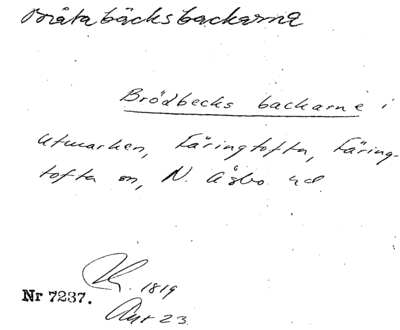 Bråtabäcksbackarna
Brödbecks backarne i
utmarken, Färingtofta, Färing-
tofta sn, N. Åsbo hd.
1819
Nr 7237.
Akt 23